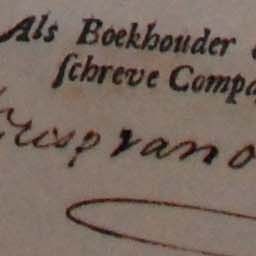 Als Boekhouder
ſchreve Compa
van o